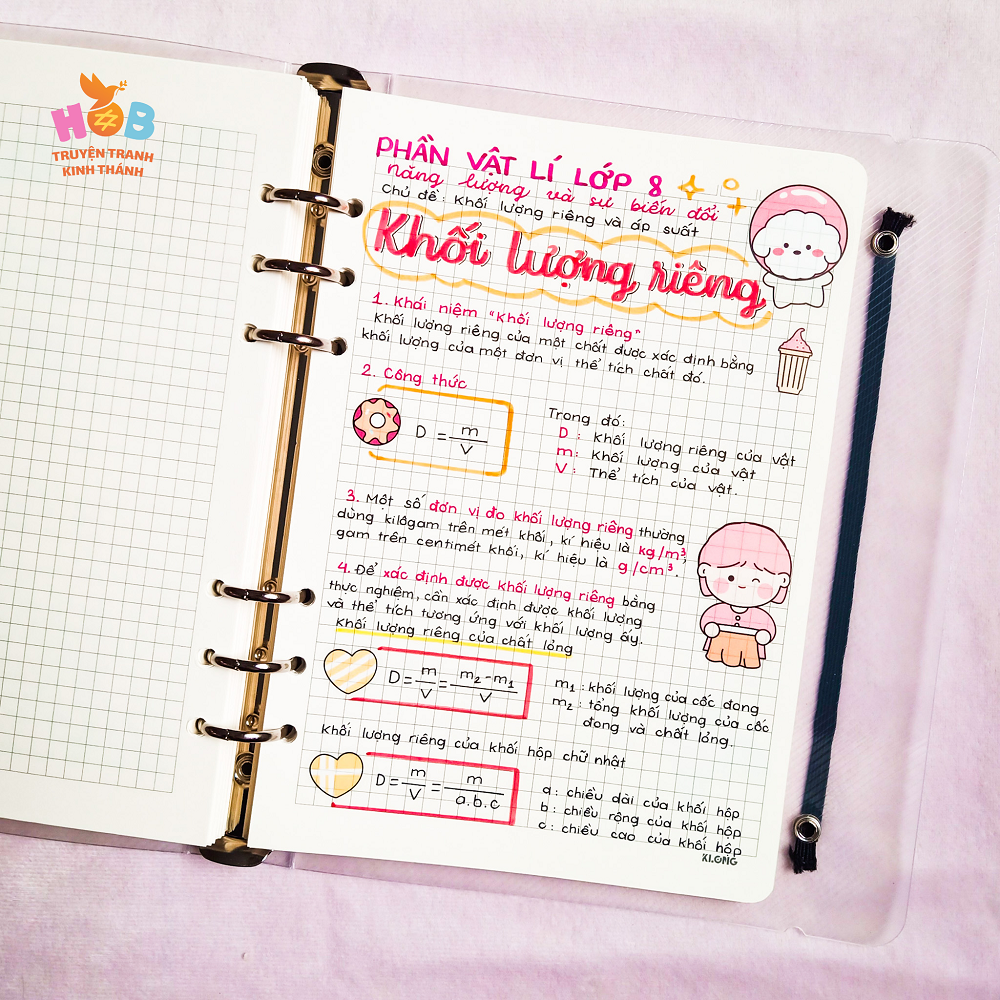 HOB
TRUYỆN TRANH
KINH THÁNH
PHẦN VẬT LÍ LỚP 8
Năng lượng và sự biến đổi
Chủ đề: Khối lượng riêng và áp suất
Khối lượng riêng
1. Khái niệm "Khối lượng riêng"
Khối lượng riêng của một chất được xác định bằng
khối lượng của một đơn vị thể tích chất đó.
2. Công thức
D = m/V
Trong đó:
D: Khối lượng riêng của vật
m: Khối lượng của vật
V: Thể tích của vật.
3. Một số đơn vị đo khối lượng riêng thường
dùng kilôgam trên mét khối, kí hiệu là kg/m³;
gam trên centimét khối, kí hiệu là g/cm³.
4. Để xác định được khối lượng riêng bằng
thực nghiệm, cần xác định được khối lượng
và thể tích tương ứng với khối lượng ấy.
Khối lượng riêng của chất lỏng
D = m/V = m₂-m₁/V
m₁: khối lượng của cốc đong
m₂: tổng khối lượng của cốc
đong và chất lỏng.
Khối lượng riêng của khối hộp chữ nhật
D = m/V = m/a.b.c
a: chiều dài của khối hộp
b: chiều rộng của khối hộp
c: chiều cao của khối hộp
KLONG